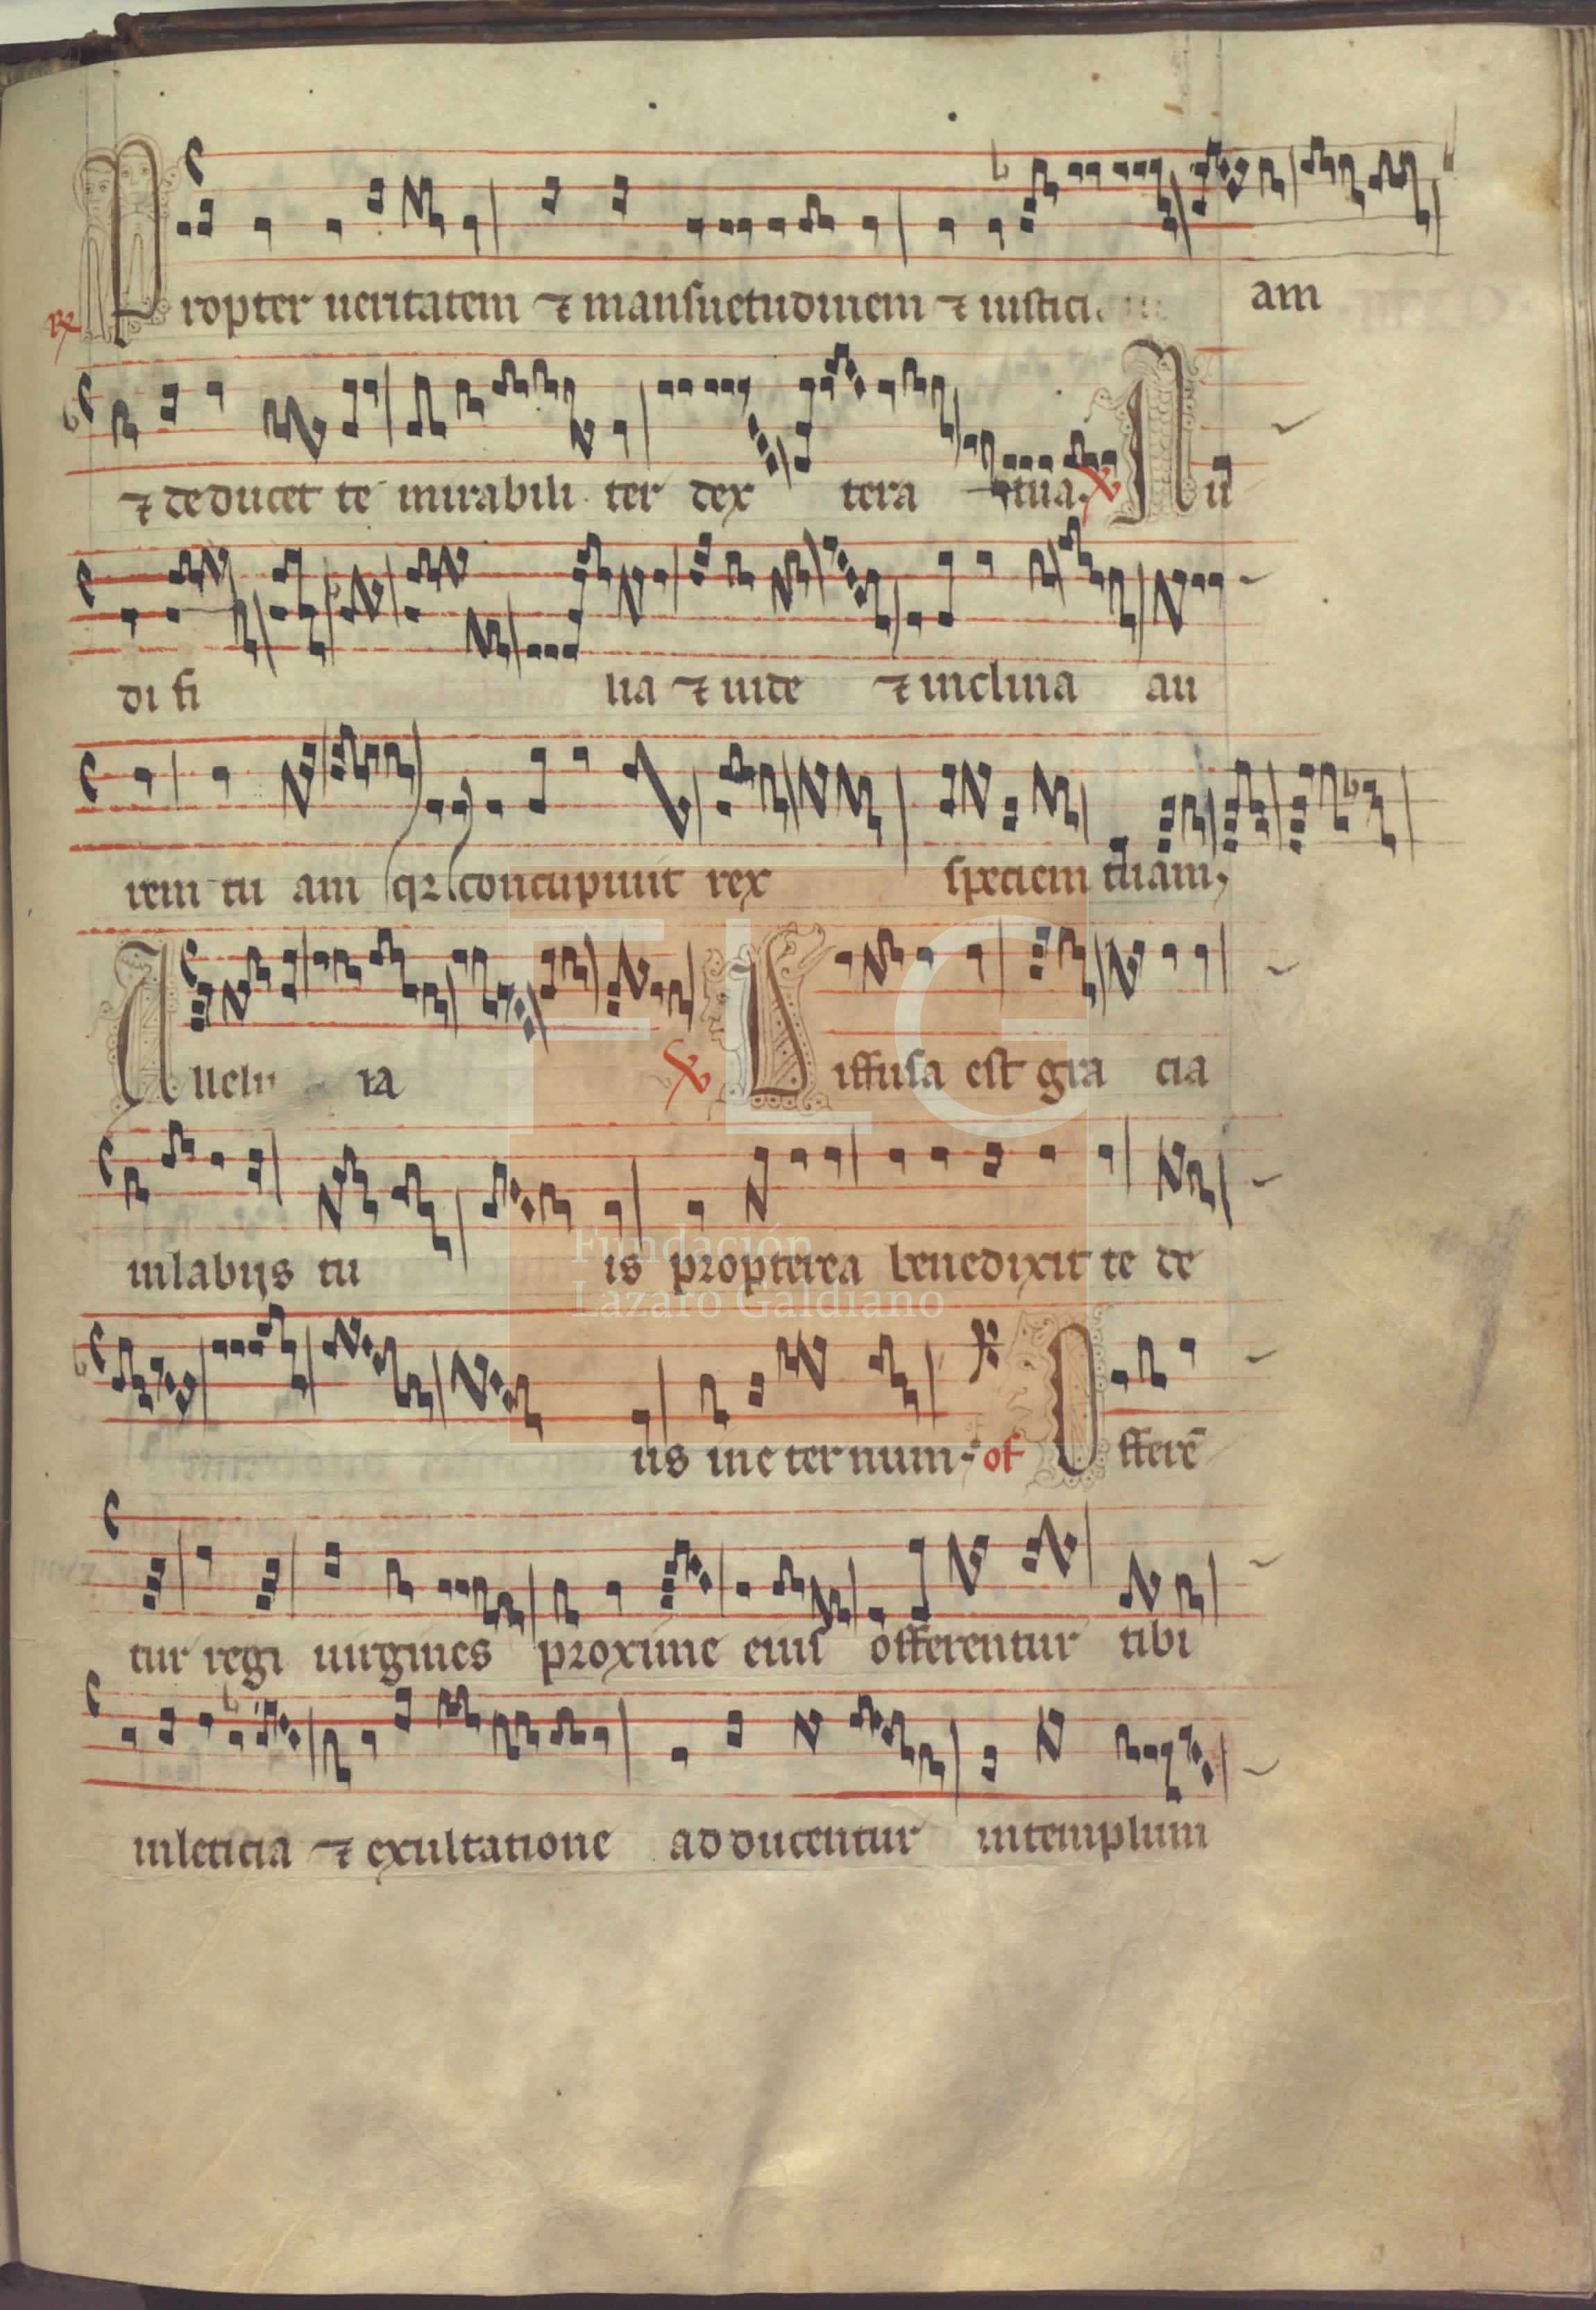 ℟ Propter ueritatem ⁊ mansuetudinem ⁊ iustici am
⁊ deducet te mirabili ter dex tera tua. ℣ Au
di fi lia ⁊ uide ⁊ inclina au
rem tu am qꝛ concupiuit rex speciem tuam,
Allelu ia ℣ Diffusa est gra cia
inlabijs tu is propterea benedixit te de
us ine ternum. of Offerē
tur regi uirgines proxime eius offerentur tibi
inleticia ⁊ exultatione adducentur intemplum
FLG
Fundación
Lázaro Galdiano